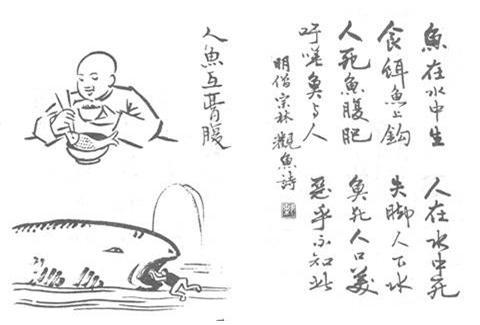 魚在水中生 人在水中死
食餌魚上鈎 失脚人下水
人死魚腹肥 魚死人口美
吁嗟魚与人 惡乎不知此
明僧宗林 觀魚詩
人魚互膏腹